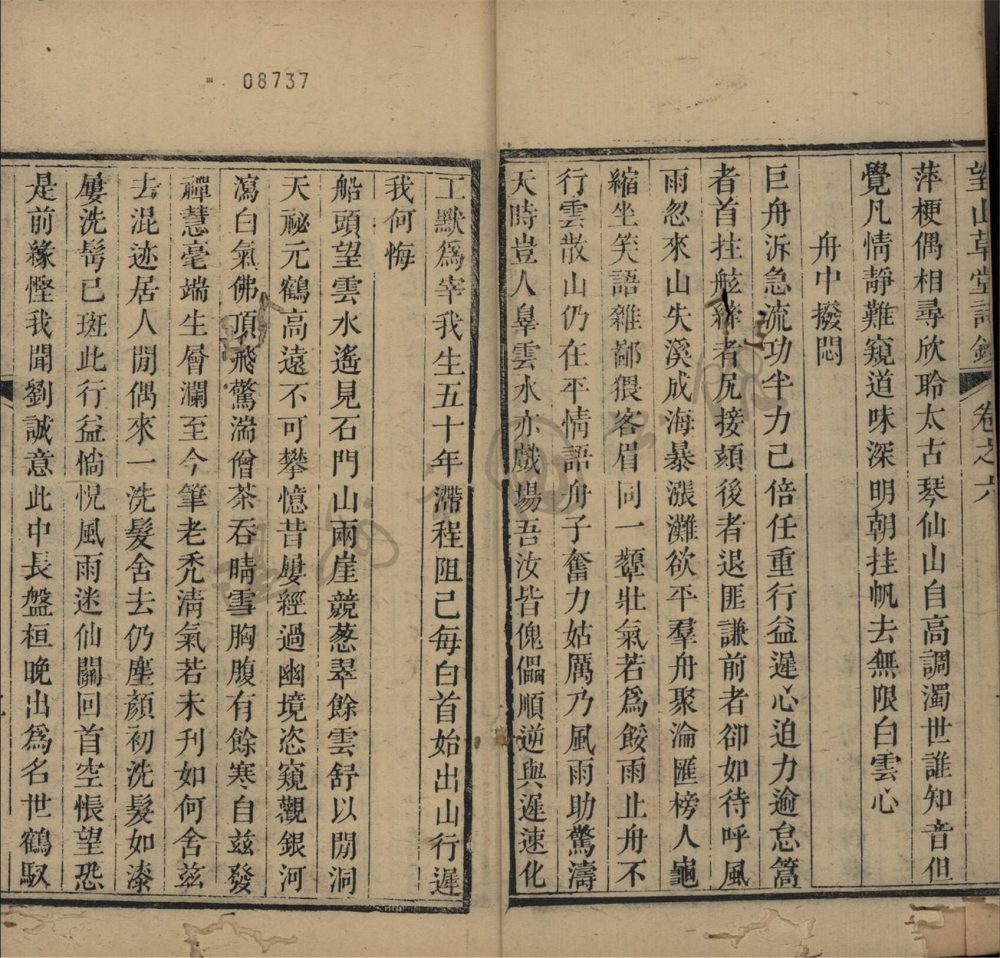 望山草堂詩鈔 卷之六
萍梗偶相尋欣聆太古琴仙山自高調濁世誰知音但
覺凡情靜難窺道味深明朝挂帆去無限白雲心
舟中撥悶
巨舟泝急流功半力已倍任重行益遲心迫力逾怠篙
者首拄舷縴者尻接頦後者退匪謙前者卻如待呼風
雨忽來山失溪成海暴漲灘欲平羣舟聚淪匯榜人龜
縮坐笑語雜鄙猥客眉同一顰壯氣若爲餒雨止舟不
行雲散山仍在平情語舟子奮力姑厲乃風雨助驚濤
天時豈人辠雲水亦戲場吾汝皆傀儡順逆與遲速化
工默爲宰我生五十年滯程阻己每白首始出山行遲
我何悔
船頭望雲水遙見石門山兩崖競葱翠餘雲舒以閒洞
天祕元鶴高遠不可攀憶昔屢經過幽境恣窺觀銀河
瀉白氣佛頂飛驚湍僧茶吞晴雪胸腹有餘寒自茲發
禪慧毫端生層瀾至今筆老禿淸氣若未刊如何舍茲
去混迹居人閒偶來一洗髮舍去仍塵顏初洗髮如漆
屢洗鬢已斑此行益惝怳風雨迷仙關回首空悵望恐
是前緣慳我聞劉誠意此中長盤桓晚出爲名世鶴馭
08737